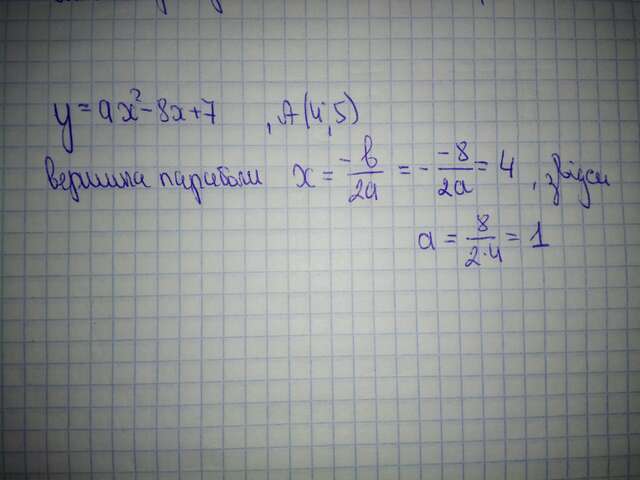 y = ax² - 8x + 7 , A(4; 5)
вершина параболи x = -b/2a = - -8/2a = 4 , звідси
a = 8/2·4 = 1